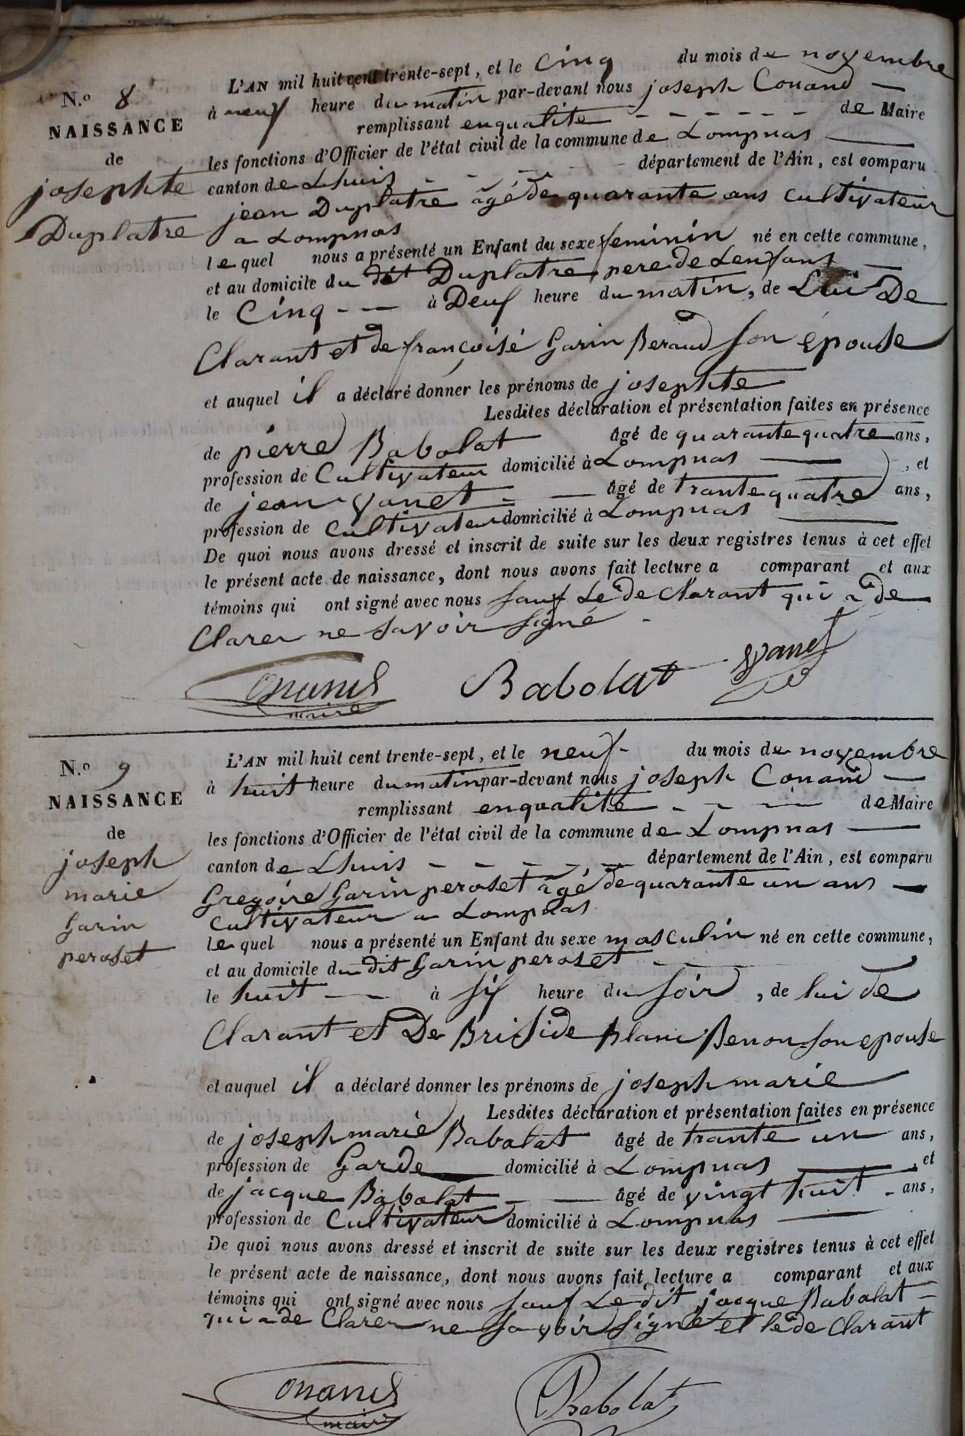 N.o 8
NAISSANCE
de
josephte
Duplatre
L'AN mil huit cent trente-sept, et le cinq du mois de novembre
à neuf heure du matin par-devant nous joseph Conand
remplissant enqualité de Maire
les fonctions d'Officier de l'état civil de la commune de Lompnas
canton de Lhuis département de l'Ain, est comparu
jean Duplatre agé de quarante ans cultivateur
a Lompnas
lequel nous a présenté un Enfant du sexe feminin né en cette commune,
et au domicile du dit Duplatre pere de Lenfans
le Cinq à Deuf heure du matin, de Lui De
Clarant et de françoise Garin Beraud son épouse
et auquel il a déclaré donner les prénoms de josephte
Lesdites déclaration et présentation faites en présence
de pierre Babolat âgé de quarante quatre ans,
profession de Cultivateur domicilié à Lompnas, et
de jean vanet âgé de trante quatre ans,
profession de cultivateur domicilié à Lompnas
De quoi nous avons dressé et inscrit de suite sur les deux registres tenus à cet effet
le présent acte de naissance, dont nous avons fait lecture a comparant et aux
témoins qui ont signé avec nous sauf Le de Clarant qui a de
Clarer ne savoir signé
Conand
maire
Babolat
vanet
N.o 9
NAISSANCE
de
joseph
marie
Garin
peroset
L'AN mil huit cent trente-sept, et le neuf du mois de novembre
à huit heure du matin par-devant nous joseph Conand
remplissant enqualité de Maire
les fonctions d'Officier de l'état civil de la commune de Lompnas
canton de Lhuis département de l'Ain, est comparu
Gregoire Garin peroset agé de quarante un ans
cultivateur a Lompnas
lequel nous a présenté un Enfant du sexe masculin né en cette commune,
et au domicile du dit Garin peroset
le huit à sis heure du soir, de lui de
Clarant et De Briside Blanc Benon son epouse
et auquel il a déclaré donner les prénoms de joseph marie
Lesdites déclaration et présentation faites en présence
de joseph marie Babolat âgé de trante un ans,
profession de Garde domicilié à Lompnas, et
de jacque Babolat âgé de vingt huit ans,
profession de Cultivateur domicilié à Lompnas
De quoi nous avons dressé et inscrit de suite sur les deux registres tenus à cet effet
le présent acte de naissance, dont nous avons fait lecture a comparant et aux
témoins qui ont signé avec nous sauf Le dit jacque Babolat
qui a de Clarer ne savoir signé et le de Clarant
Conand
maire
Babolat